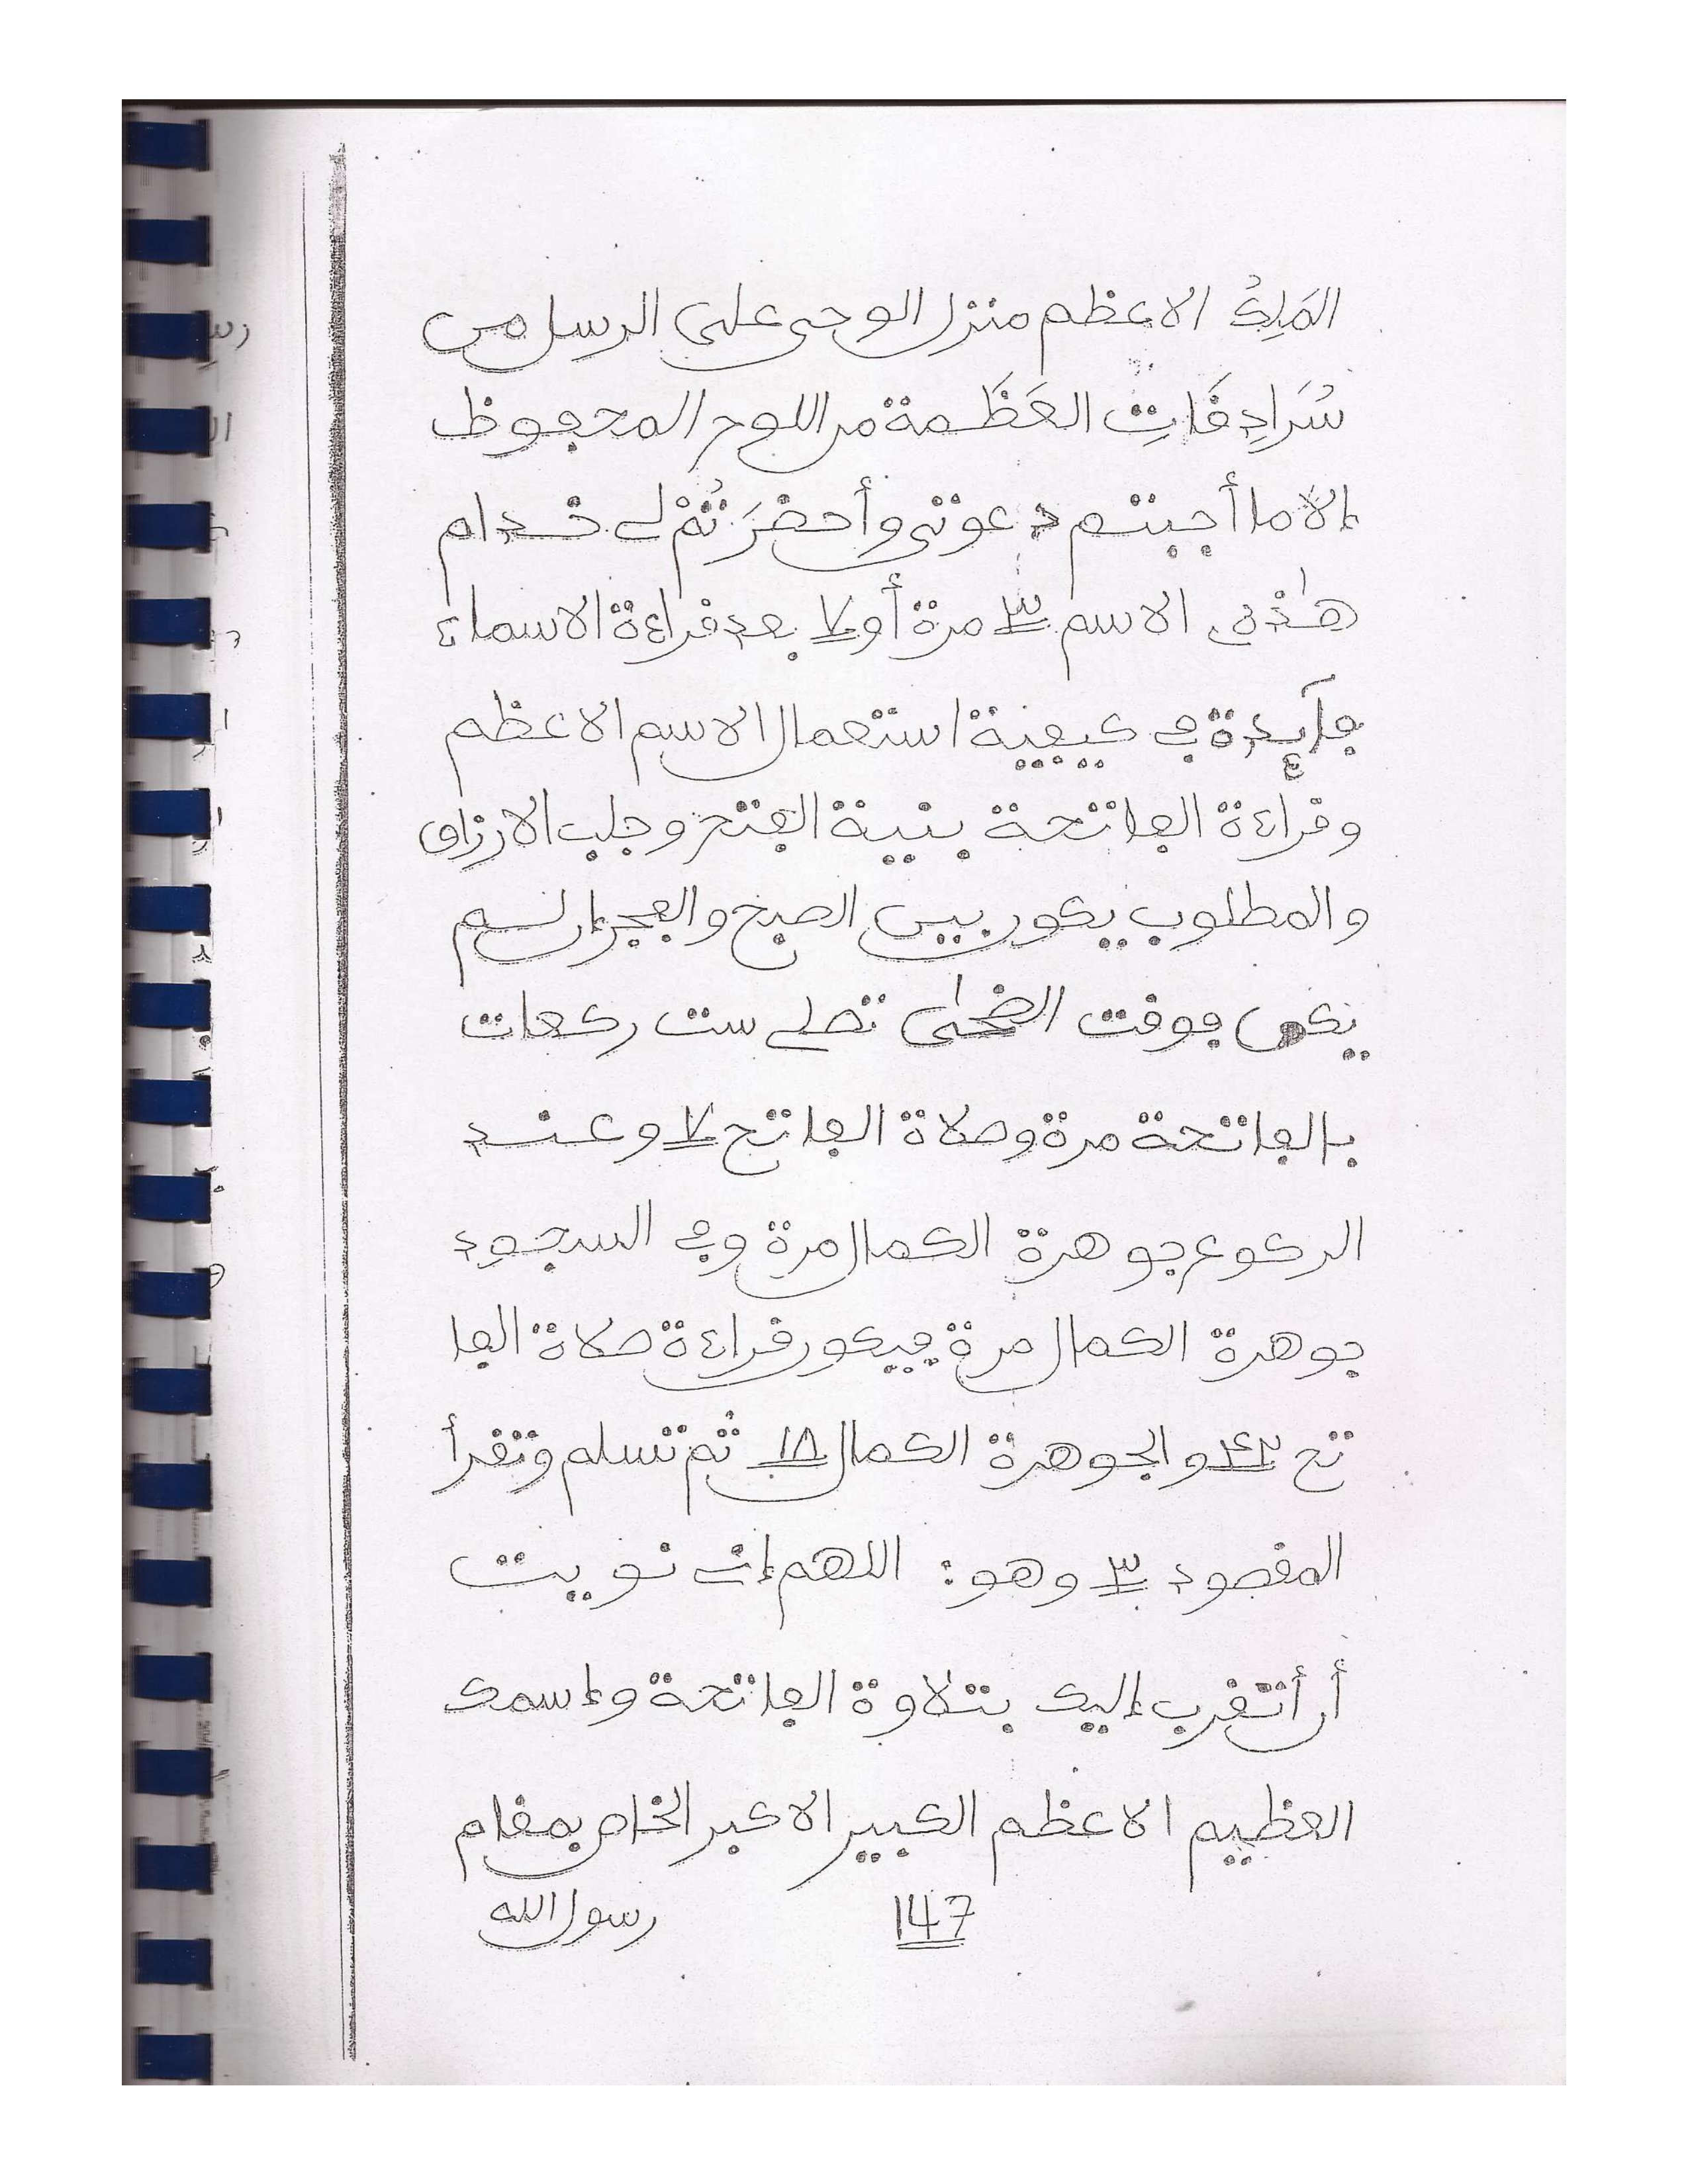 المَلِكُ الاعظم منزل الوحي على الرسل من
سُرَادِقَاتِ العَظَمة من اللوح المحفوظ
إلاّ ما أجبتم دعوتي وأحضَرَتُمْ لي خدام
هٰذه الاسم ٣ مرة أو ٧ بعد قراءة الاسماء
فآيدة في كيفية استعمال الاسم الاعظم
وقراءة الفاتحة بنية الفتح وجلب الارزاق
والمطلوب يكون بين الصبح والفجر إن لم
يكن فوقت الضحى تصلي ست ركعات
بالفاتحة مرة وصلاة الفاتح ٧ وعند
الركوع جوهرة الكمال مرة وفي السجود
جوهرة الكمال مرة فيكون قراءة صلاة الفا
تح ٤٢ والجوهرة الكمال ١٨ ثم تسلم وتقرأ
المقصود ٣ وهو: اللهم إني نويت
أن أتقرب إليك بتلاوة الفاتحة وإسمك
العظيم الاعظم الكبير الاكبر الخاص بمقام
رسول الله
147